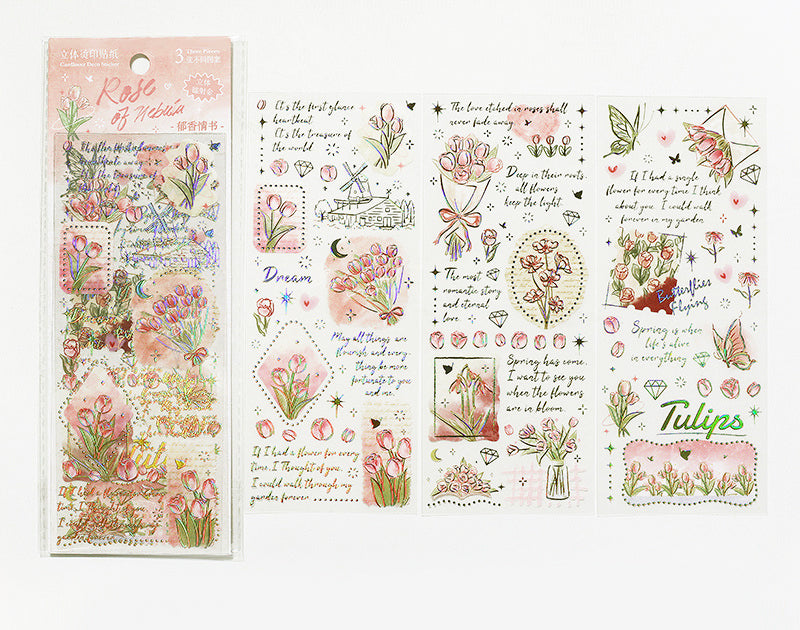 立体烫印贴纸
3 Three Pieces
张不同图案
Rose
of Nebula
立体
镭射金
- 郁香情书 -
It's the first glance
heartbeat
It's the treasure of
the world
Dream
May all things are
flourish, and every-
thing be more
fortunate to you
and me.
If I had a flower for every
time, I Thought of you,
I could walk through my
garden forever
The love etched in roses shall
never fade away
Deep in their roots,
all flowers
keep the light.
The most
romantic story
and eternal
love
Spring has come.
I want to see you
when the flowers
are in bloom.
If I had a single
flower for every time I think
about you, I could walk
forever in my garden
Butterflies
Flying
Spring is when
life's alive
in everything
Tulips